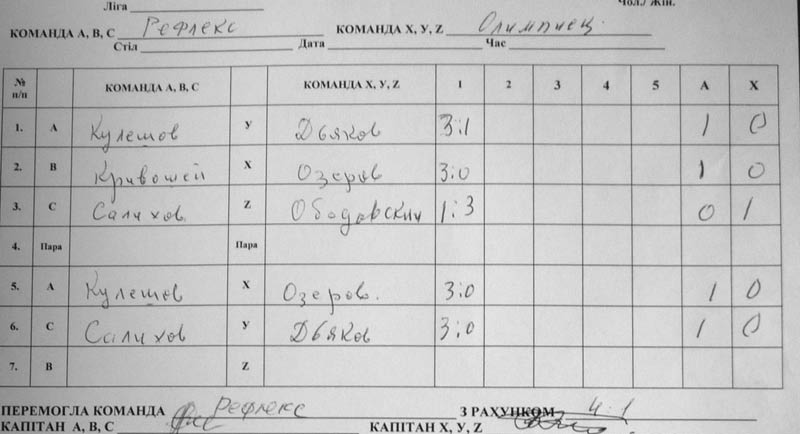 Ліга
Чол./ Жін.
КОМАНДА А, В, С Рефлекс КОМАНДА X, У, Z Олимпиец
Стіл Дата Час
№ п/п КОМАНДА А, В, С КОМАНДА X, У, Z 1 2 3 4 5 А X
1. А Кулешов У Дьяков 3:1 1 0
2. В Кривошей X Озеров 3:0 1 0
3. С Салихов Z Ободовский 1:3 0 1
4. Пара Пара
5. А Кулешов X Озеров. 3:0 1 0
6. С Салихов У Дьяков 3:0 1 0
7. В Z
ПЕРЕМОГЛА КОМАНДА Рефлекс З РАХУНКОМ 4:1
КАПІТАН А, В, С КАПІТАН X, У, Z